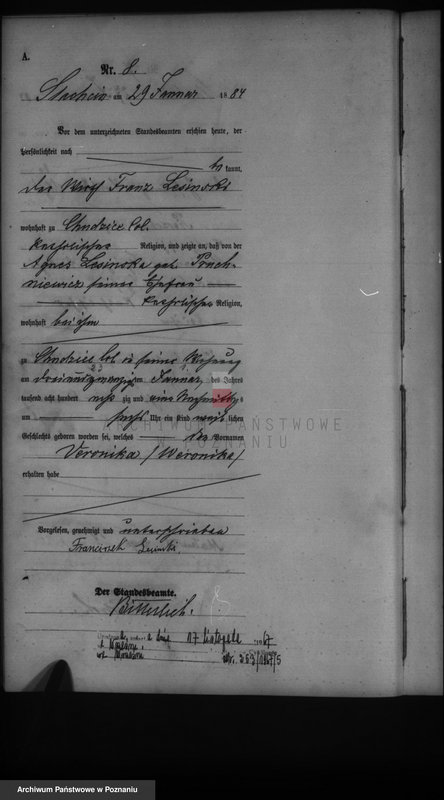 A.
Nr. 8.
am 29 Januar 1884
Vor dem unterzeichneten Standesbeamten erschien heute, der
Persönlichkeit nach
be kannt,
der Wirth Franz Lesinski
wohnhaft zu Chudzice Col.
katholischer Religion, und zeigte an, daß von der
Agnes Lesinska geb.
seiner Ehefrau
katholischer Religion,
wohnhaft bei ihm
zu Chudzice Col. in seiner Wohnung
am dreiundzwanzigsten Januar des Jahres
23
tausend acht hundert achtzig und vier Nachmittags
um sechs Uhr ein Kind weiblichen
Geschlechts geboren worden sei, welches den Vornamen
Veronika /Weronika/
erhalten habe
Vorgelesen, genehmigt und unterschrieben
Franciszek Lesinski
Der Standesbeamte.
Bitterlich.
dnia 17 listopada 1967
Nr. 353/1967/5
ARCHIWUM PAŃSTWOWE
W POZNANIU
Archiwum Państwowe w Poznaniu